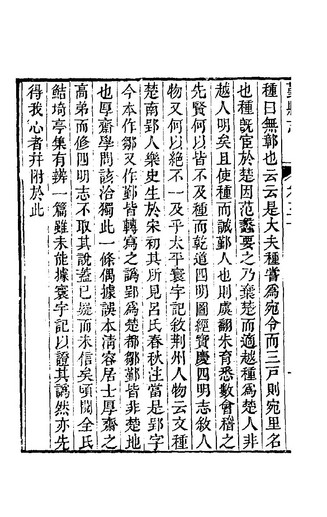 種曰無鄣也云云是大夫種嘗爲宛令而三戸則宛里名
也種旣宦於楚因范蠡要之乃棄楚而適越種爲楚人非
越人明矣且使種而誠鄞人也則虞翻朱育悉數會稽之
先賢何以皆不及種而乾道四明圖經寶慶四明志敘人
物又何以絶不一及乎太平寰宇記敘荆州人物云文種
楚南郢人樂史生於宋初其所見呂氏春秋注當是郢字
今本作鄒又作鄞皆轉寫之譌郢爲楚都鄒鄞皆非楚地
也厚齋學問該洽獨此一條偶據誤本淸容居士厚齋之
高弟而修四明志不取其說蓋已疑而未信矣頃閲全氏
鮚埼亭集有辨一篇雖未能據寰宇記以證其譌然亦先
得我心者幷附於此